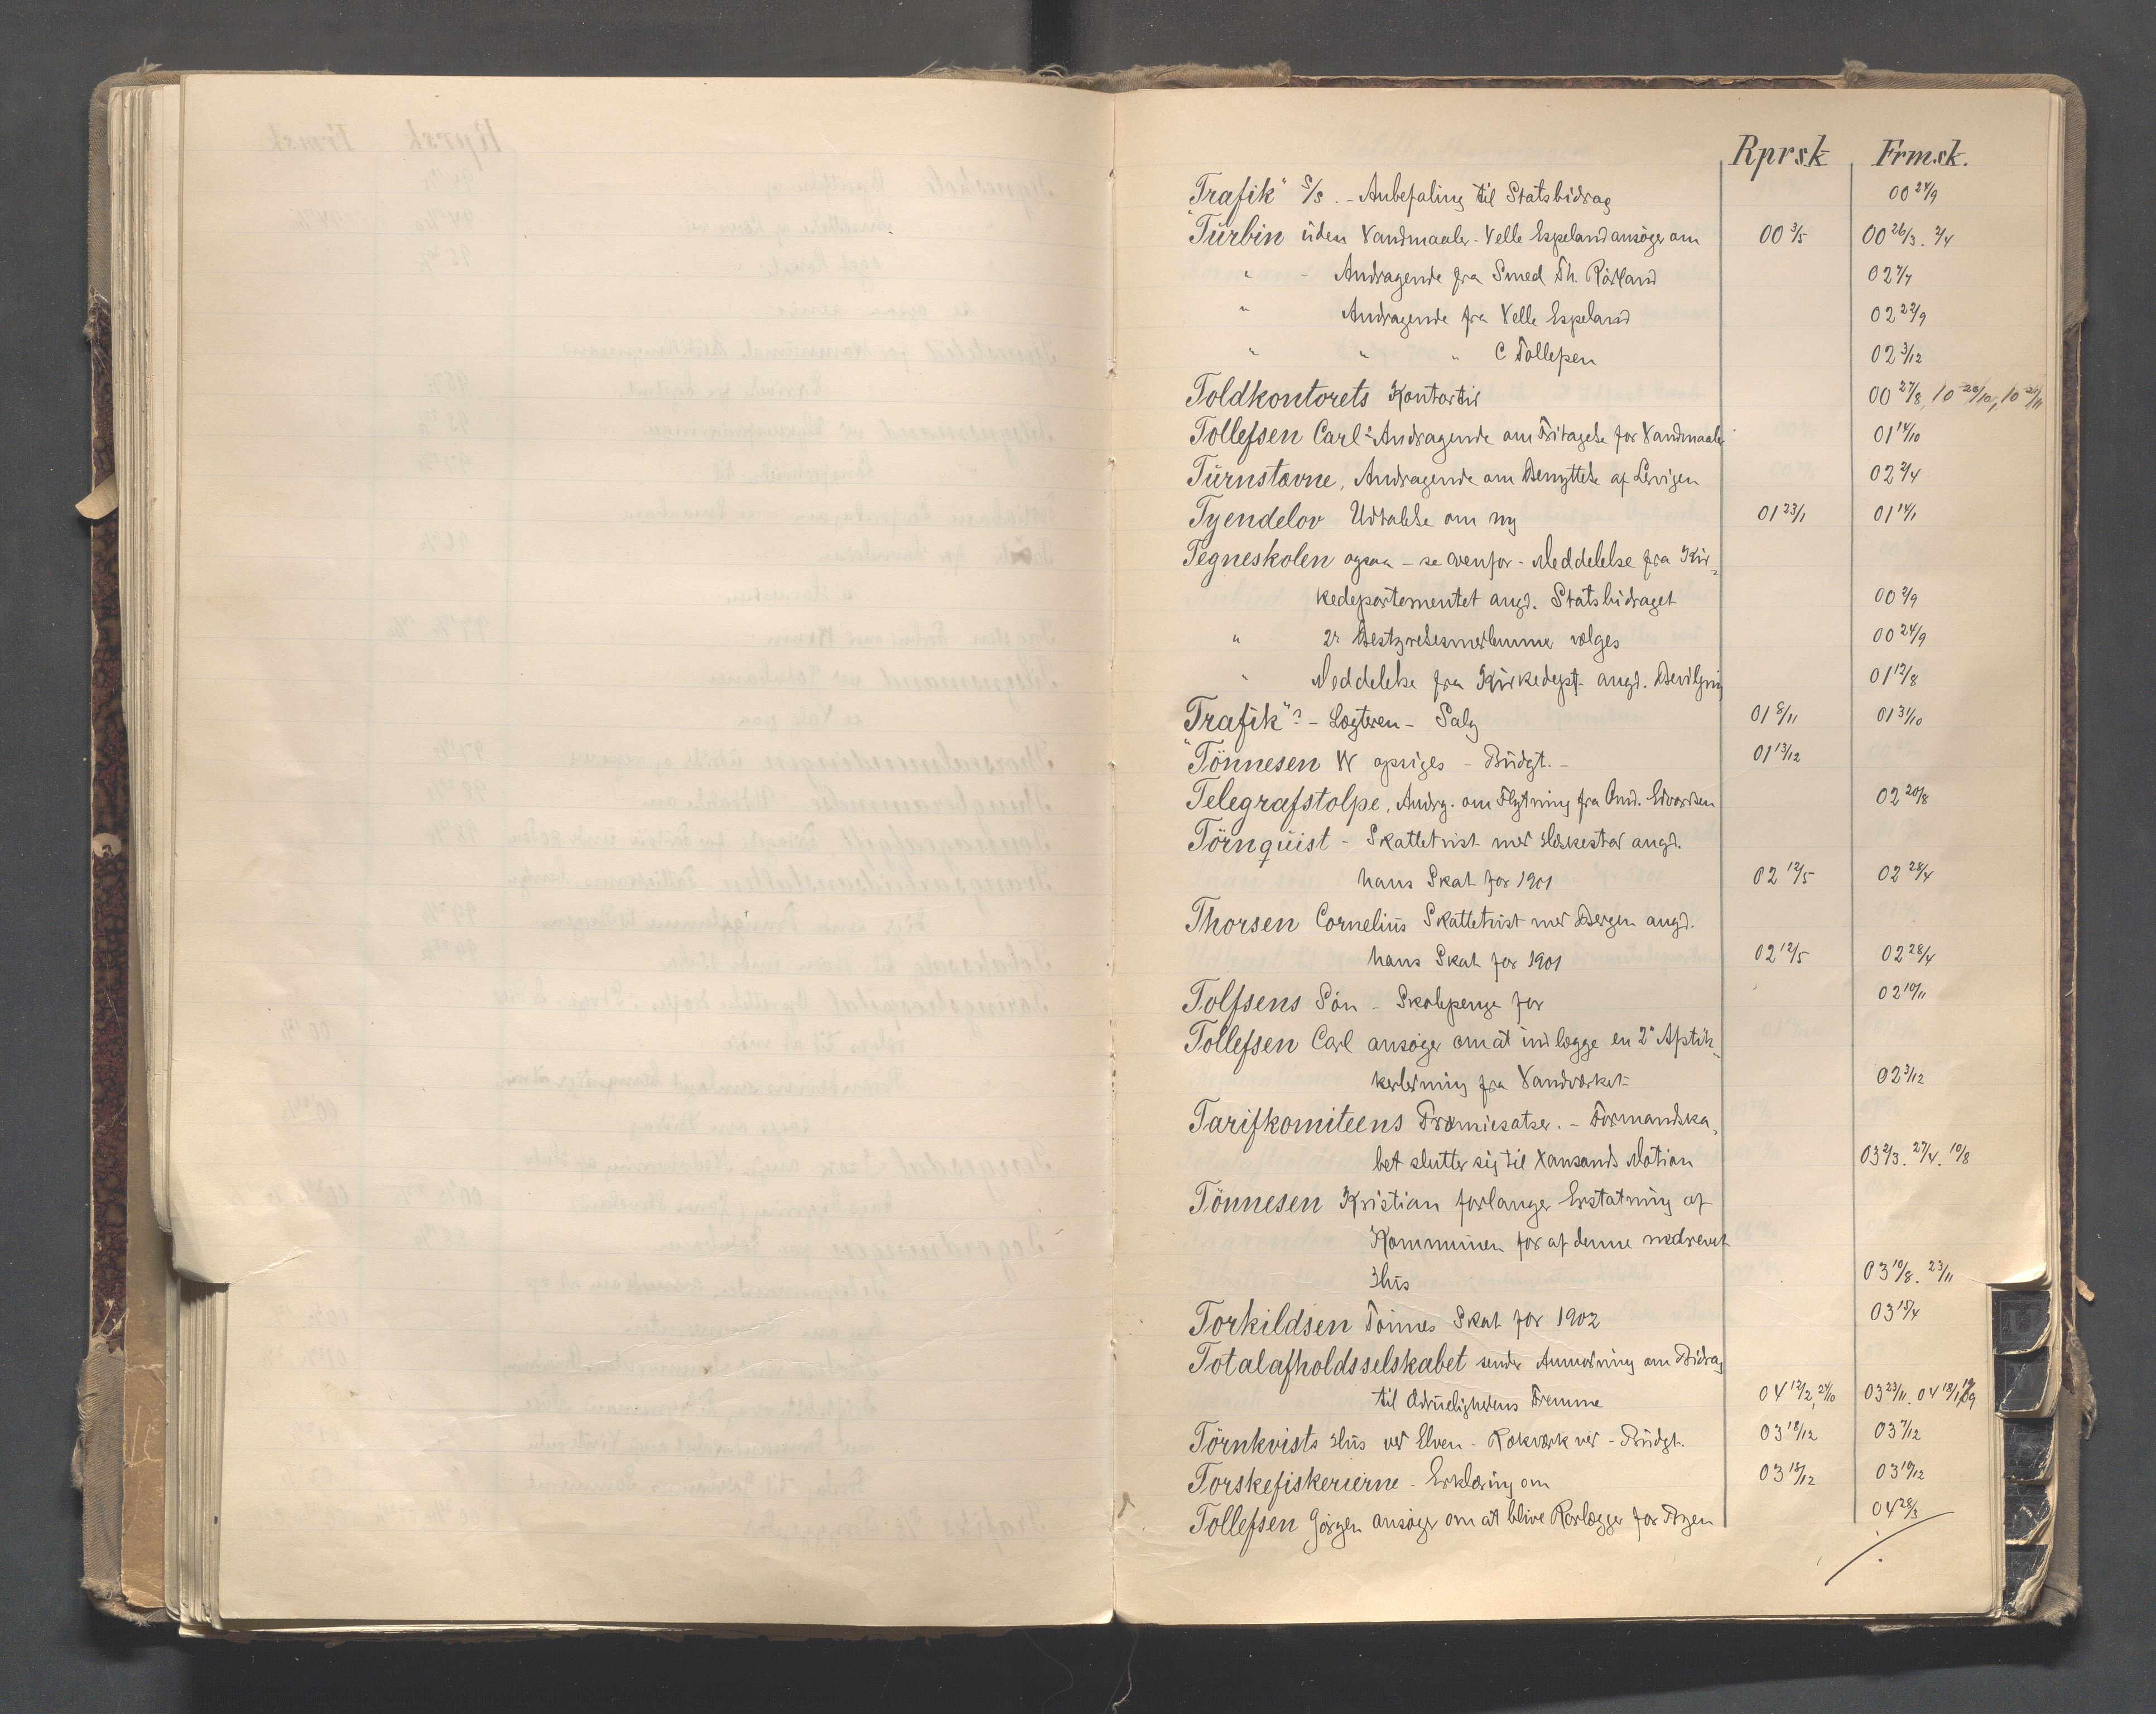 Rprsk Frmsk.
Trafik" S/S. - Anbefaling til Statsbidrag 00 24/9
"Turbin uden Vandmaaler - Velle Espeland ansøger om 00 3/5 00 26/3. 2/4
" - Andragende fra Smed Th. Rörland 02 7/7
" Andragende fra Velle Espeland 02 22/9
" " " C Tollefsen 02 3/12
Toldkontorets Kontortid 00 27/8, 10 28/10, 10 21/11
Tollefsen Carl: Andragende om Fritagelse for Vandmaaler 01 14/10
Turnstævne, Andragende om Benyttelse af Lervigen 02 2/4
Tyendelov Udtalelse om ny 01 23/1 01 14/1
Tegneskolen ogsaa - se ovenfor - Meddelelse fra Kir-
kedepartementet angd. Statsbidraget 00 2/9
" 2de Bestyrelsesmedlemmer vælges 00 24/9
" Meddelelse fra Kirkedept. angd. Bevilgning 01 12/8
Trafik"? - Lægteren - Salg 01 8/11 01 31/10
"Tönnesen W opsiges - Budgt. - 01 13/12
Telegrafstolpe, Andrg. om Flytning fra Omd. Edvardsen 02 20/8
Törnquist - Skattetvist med Haskestad angd.
hans Skat for 1901 02 12/5 02 28/4
Thorsen Cornelius Skattetvist med Bergen angd.
hans Skat for 1901 02 12/5 02 28/4
Tolfsens Sön - Skolepenge for 02 10/11
Tollefsen Carl ansøger om at indlægge en 2" Aptik-
kerledning fra Vandværket 02 3/12
Tarifkomiteens Præmiesatser. - Formandska-
bet slutter sig til Xansands Motion 03 2/3. 27/4. 10/8
Tönnesen Kristian forlanger Erstatning af
Kommunen for af denne nedrevet
Hus 03 10/8. 23/11
Torkildsen Tönnes Skat for 1902 03 15/4
Totalafholdsselskabet sender Anmodning om Bidrag
til Ædrueligheens Fremme 04 12/2, 24/10 03 23/11. 04 18/1, 19/9
Törnkvists Hus ved Elven - Rækværk ved - Budgt. 03 18/12 03 7/12
Torskefiskerierne - Erklæring om 03 18/12 03 10/12
Tollefsen Görgen ansøger om at blive Rørlægger for Byen 04 28/3